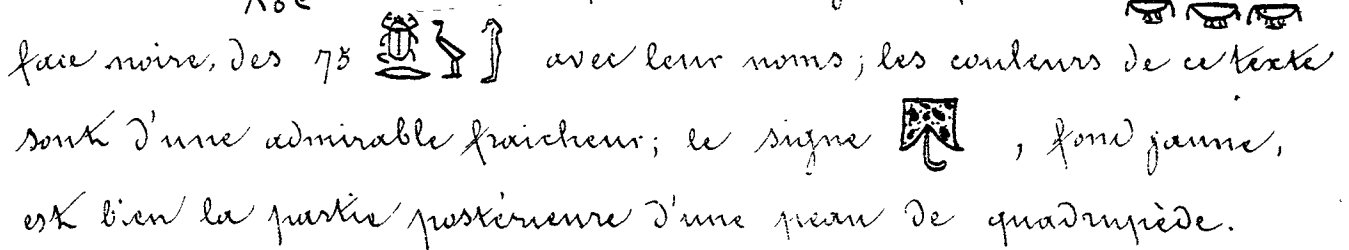 face noire, des 75 𓆣𓂋𓅱𓀾 avec leur noms ; les couleurs de ce texte
sont d'une admirable fraicheur ; le signe 𓄛 , fond jaune,
est bien la partie postérieure d'une peau de quadrupède.